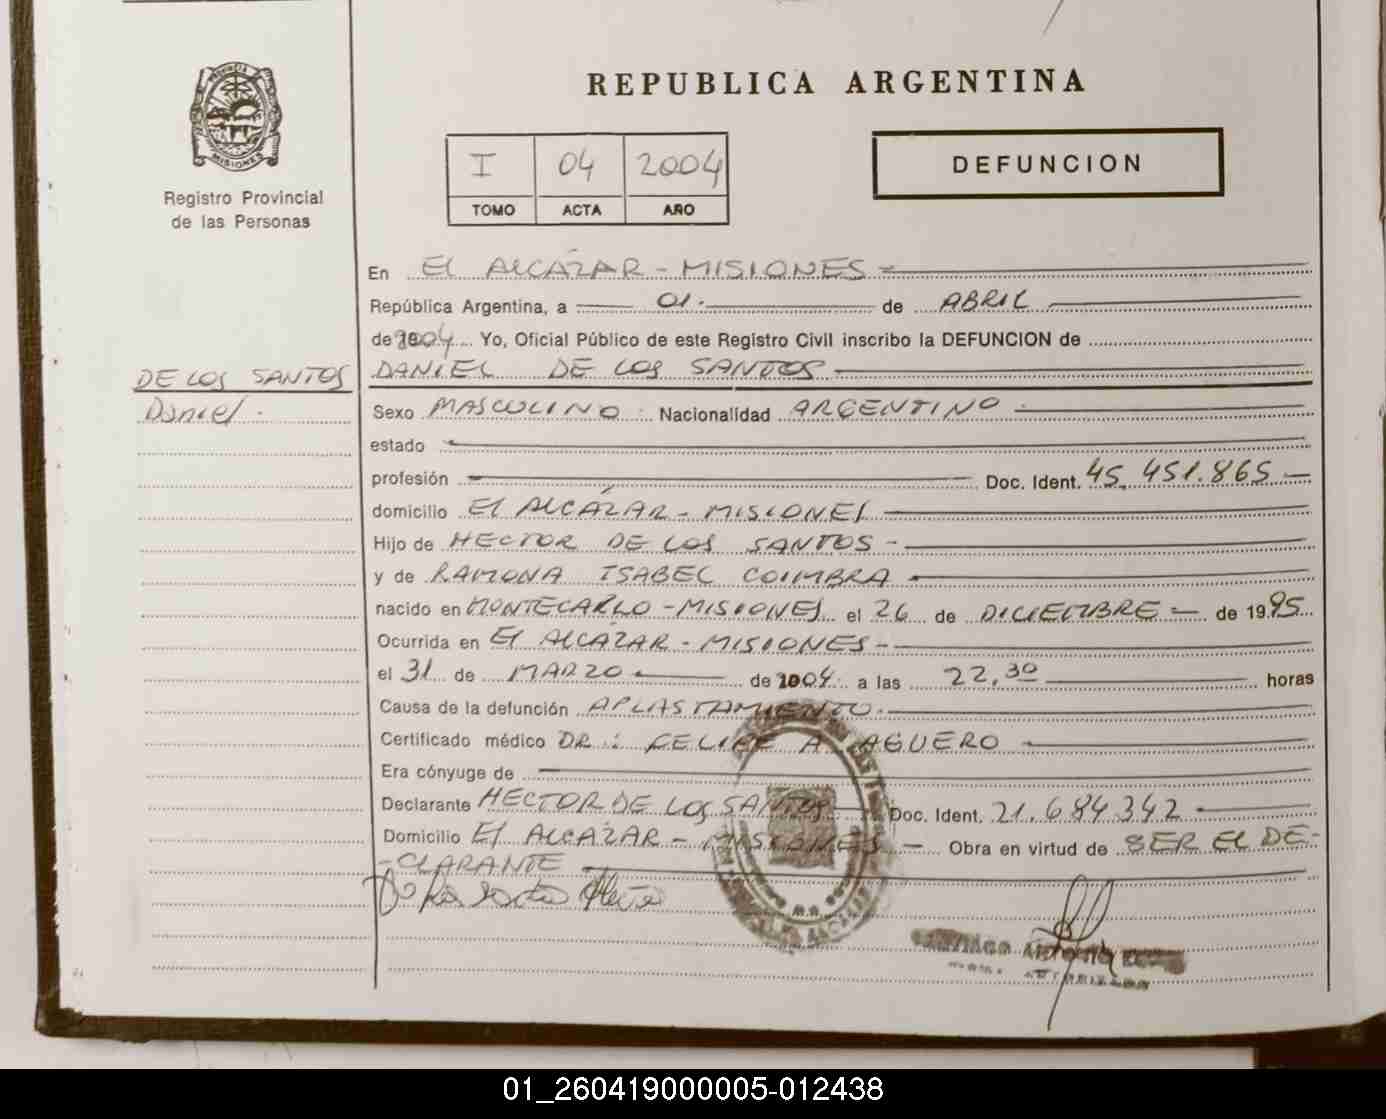 PROVINCIA
MISIONES
Registro Provincial
de las Personas
REPUBLICA ARGENTINA
I 04 2004
TOMO ACTA AÑO
DEFUNCION
En El ALCÁZAR - MISIONES
República Argentina, a 01. de ABRIL
de 2004 Yo, Oficial Público de este Registro Civil inscribo la DEFUNCION de
DE LOS SANTOS
Daniel.
DANIEL DE LOS SANTOS
Sexo MASCULINO Nacionalidad ARGENTINO
estado
profesión Doc. Ident. 45.451.865
domicilio El ALCÁZAR - MISIONES
Hijo de HECTOR DE LOS SANTOS -
y de RAMONA ISABEL COIMBRA
nacido en MONTECARLO - MISIONES el 26 de DICIEMBRE de 1995
Ocurrida en El ALCAZAR - MISIONES -
el 31 de MARZO de 2004 a las 22,30 horas
Causa de la defunción APLASTAMIENTO.
Certificado médico DR.: FELIPE A. AGUERO
Era cónyuge de
Declarante HECTOR DE LOS SANTOS Doc. Ident. 21.684.342
Domicilio El ALCÁZAR - MISIONES - Obra en virtud de SER EL DE-
-CLARANTE
01_260419000005-012438